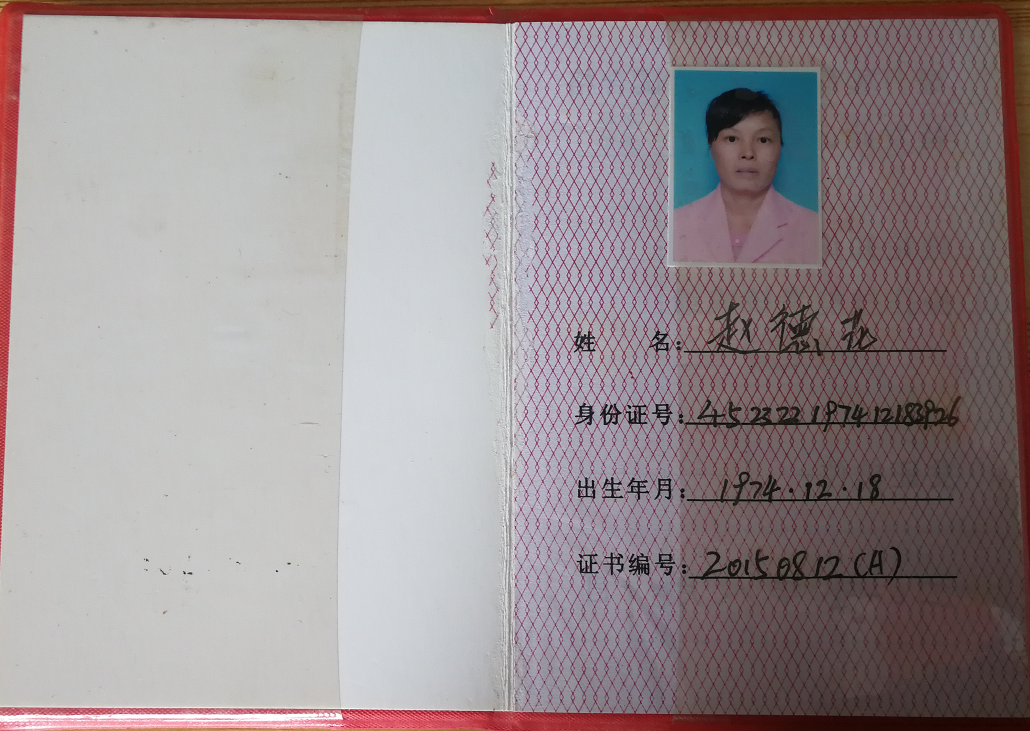 姓 名：赵德花
身份证号：452322197412183926
出生年月：1974.12.18
证书编号：20150812(A)